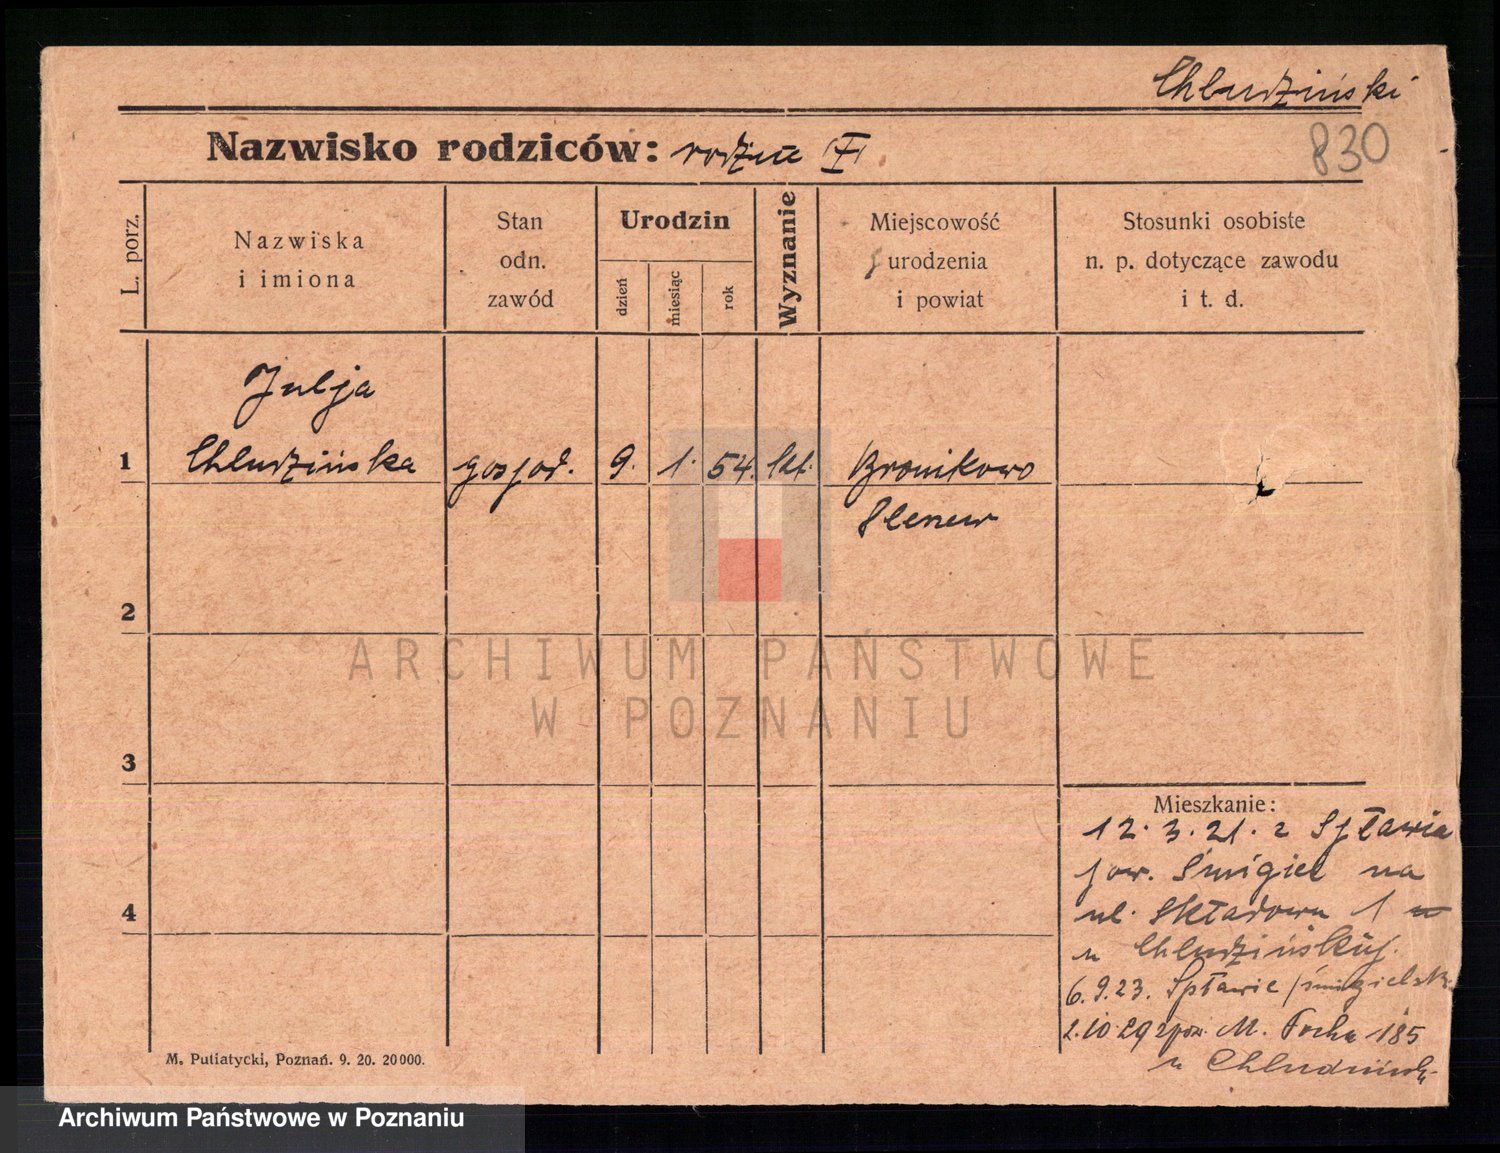 Chludziński
830
Nazwisko rodziców:
L. porz.
Nazwiska
i imiona
Stan
odn.
zawód
Urodzin
dzień
miesiąc
rok
Wyznanie
Miejscowość
urodzenia
i powiat
Stosunki osobiste
n. p. dotyczące zawodu
i t. d.
Julja
1 Chludzińska gospod. 9. 1. 54. kt. Bronikowo
2
3
4
Mieszkanie:
12. 3. 21. z Spławia
pow. Śmigiel na
ul. Składowa 1
u Chludzińskiej.
6.9.23. Spławie /śmigielsk
2.10.29 M. Focha 185
u
M. Putiatycki, Poznań. 9. 20. 20000.
ARCHIWUM PAŃSTWOWE
W POZNANIU
Archiwum Państwowe w Poznaniu